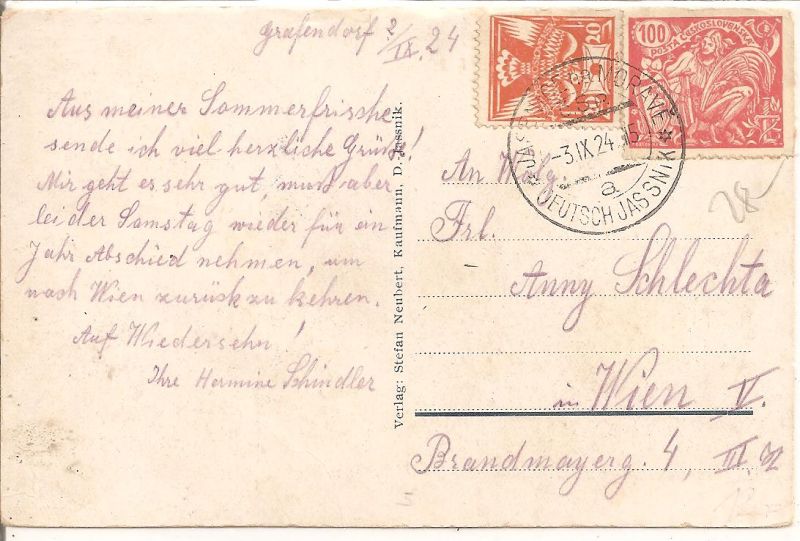 Grafendorf 2/IX. 24
Aus meiner Sommerfrische
sende ich viel herzliche Grüße!
Mir geht es sehr gut, muß aber
leider Samstag wieder für ein
Jahr Abschied nehmen, um
nach Wien zurück zu kehren.
Auf Wiedersehn!
Ihre Hermine Schindler
Verlag: Stefan Neubert, Kaufmann, D. Jassnik.
20
100
POŠTA ČESKOSLOVENSKÁ
NA MORAVĚ
-3.IX.24.-15
a
DEUTSCH JASSNIK
An
Frl.
Anny Schlechta
in Wien V.
Brandmayerg. 4, III,
28